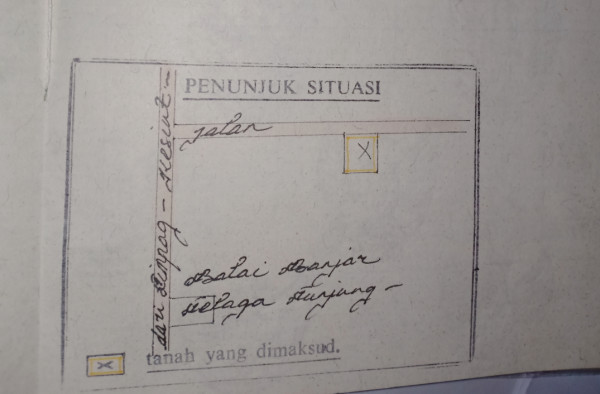 PENUNJUK SITUASI
jalan
X
dari
Balai Banjar
Telaga Tunjung -
X tanah yang dimaksud.